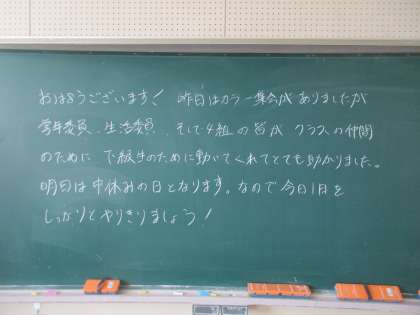 おはようございます! 昨日はカラー集会がありましたが
学年委員、生活委員、そして4組の皆がクラスの仲間
のために 下級生のために動いてくれてとても助かりました。
明日は中休みの日となります。なので今日1日を
しっかりとやりきりましょう!